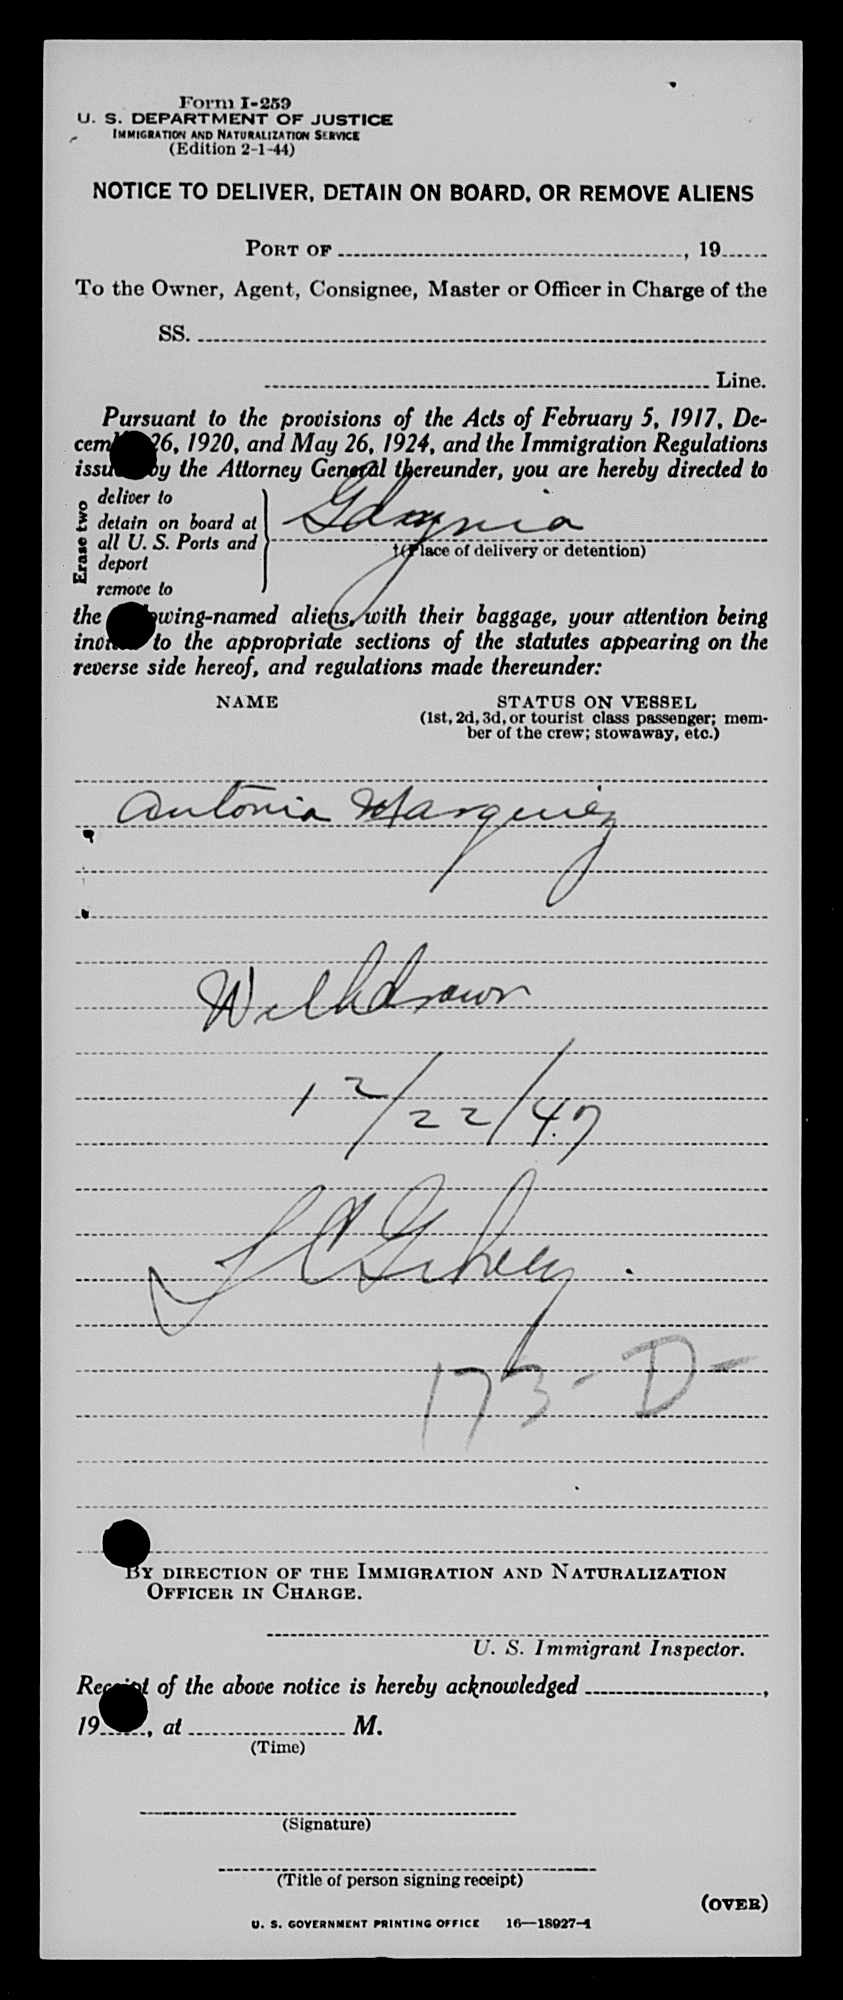 Form I-259
U. S. DEPARTMENT OF JUSTICE
IMMIGRATION AND NATURALIZATION SERVICE
(Edition 2-1-44)
NOTICE TO DELIVER, DETAIN ON BOARD, OR REMOVE ALIENS
PORT OF , 19
To the Owner, Agent, Consignee, Master or Officer in Charge of the
SS.
Line.
Pursuant to the provisions of the Acts of February 5, 1917, De-
cem 26, 1920, and May 26, 1924, and the Immigration Regulations
issu by the Attorney General thereunder, you are hereby directed to
Erase two
deliver to
detain on board at
all U. S. Ports and
deport
remove to
Gdynia
(Place of delivery or detention)
the wing-named aliens, with their baggage, your attention being
invi to the appropriate sections of the statutes appearing on the
reverse side hereof, and regulations made thereunder:
NAME STATUS ON VESSEL
(1st, 2d, 3d, or tourist class passenger; mem-
ber of the crew; stowaway, etc.)
Antonia Marquiez
Withdrawn
12/22/47
173-D-
BY DIRECTION OF THE IMMIGRATION AND NATURALIZATION
OFFICER IN CHARGE.
U. S. Immigrant Inspector.
Receipt of the above notice is hereby acknowledged ,
19 , at M.
(Time)
(Signature)
(Title of person signing receipt)
(OVER)
U. S. GOVERNMENT PRINTING OFFICE 16—18927-1